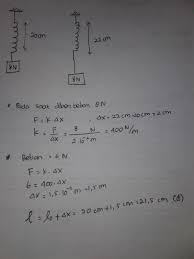 20cm
22cm
8N
8N
• Pada saat diberi beban 8N
F = k.Δx , Δx = 22cm-20cm = 2cm
k = F/Δx = 8 N / 2.10⁻² m = 400 N/m
• Beban = 6N
F = k.Δx
6 = 400.Δx
Δx = 1,5.10⁻² m = 1,5 cm
l = l₀ + Δx = 20 cm + 1,5 cm = 21,5 cm